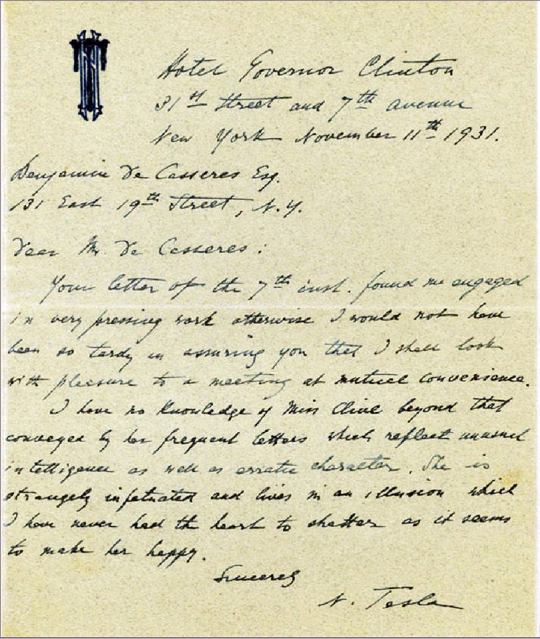 Hotel Governor Clinton
31st Street and 7th Avenue
New York November 11th 1931.
Benjamin De Casseres Esq.
131 East 19th Street, N.Y.
Dear Mr De Casseres:
Your letter of the 7th inst. found me engaged
in very pressing work otherwise I would not have
been so tardy in assuring you that I shall look
with pleasure to a meeting at mutual convenience.
I have no knowledge of Miss Clive beyond that
conveyed by her frequent letters which reflect unusual
intelligence as well as erratic character. She is
strangely infatuated and lives in an illusion which
I have never had the heart to shatter as it seems
to make her happy.
Sincerely
N. Tesla